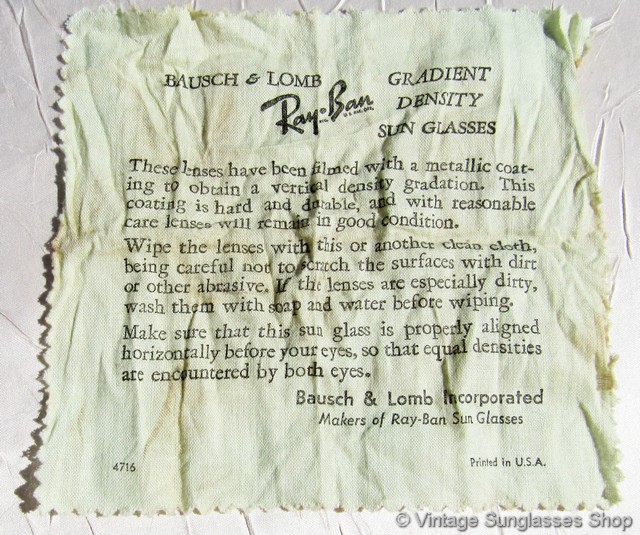 BAUSCH & LOMB GRADIENT
Ray-Ban DENSITY
SUN GLASSES
These lenses have been filmed with a metallic coat-
ing to obtain a vertical density gradation. This
coating is hard and durable, and with reasonable
care lenses will remain in good condition.
Wipe the lenses with this or another clean cloth,
being careful not to scratch the surfaces with dirt
or other abrasive. If the lenses are especially dirty,
wash them with soap and water before wiping.
Make sure that this sun glass is properly aligned
horizontally before your eyes, so that equal densities
are encountered by both eyes.
Bausch & Lomb Incorporated
Makers of Ray-Ban Sun Glasses
4716 Printed in U.S.A.
© Vintage Sunglasses Shop